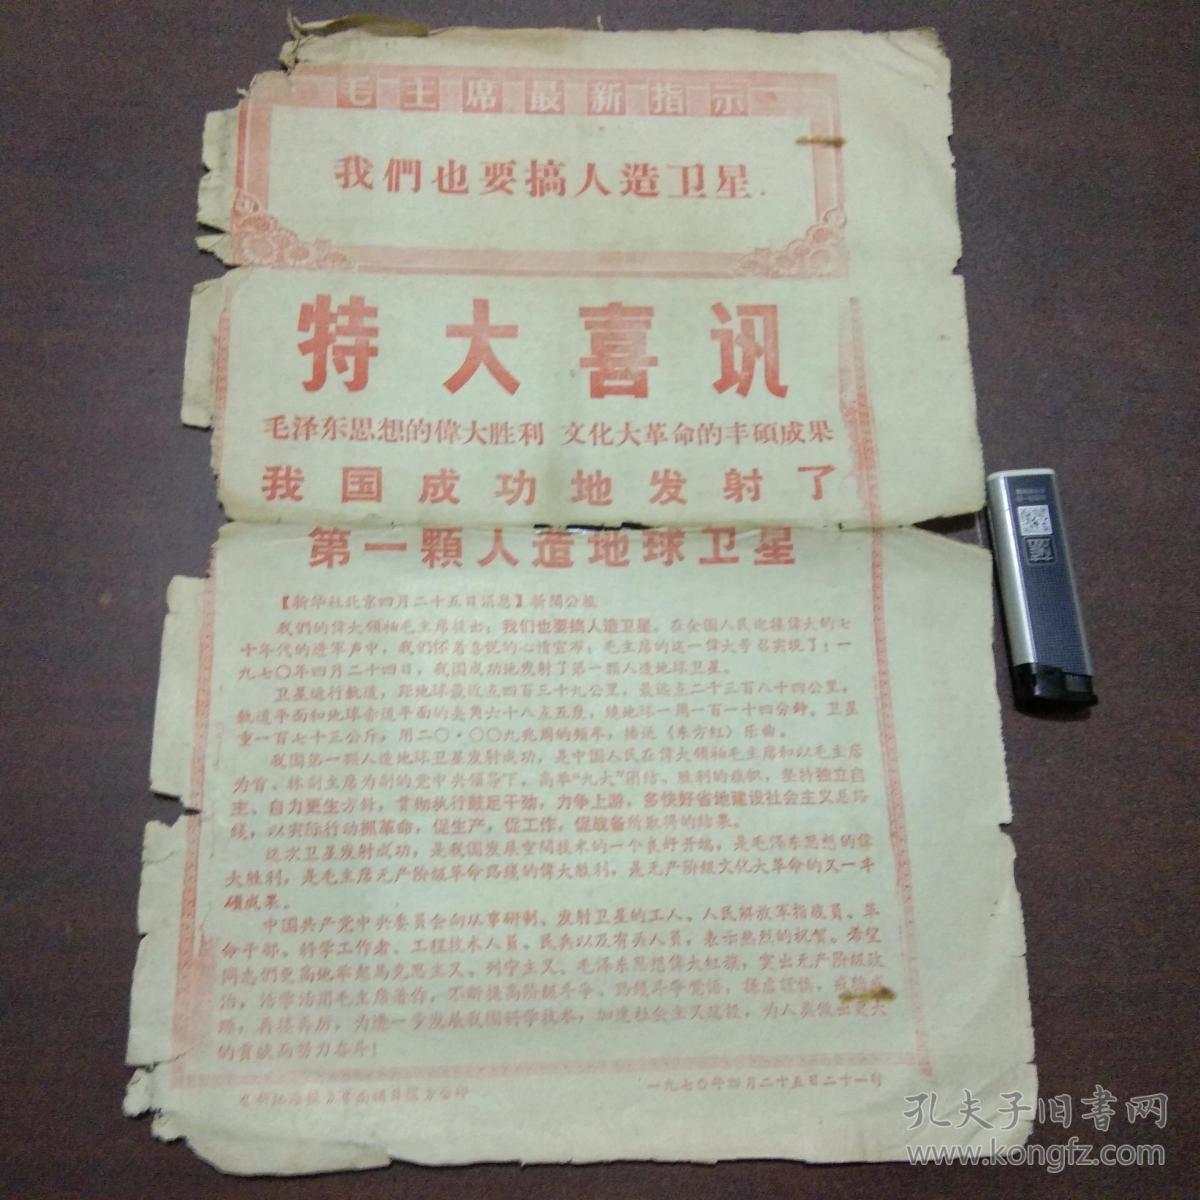 毛主席最新指示
我們也要搞人造卫星.
特大喜讯
毛泽东思想的偉大胜利 文化大革命的丰碩成果
我国成功地发射了
第一顆人造地球卫星
【新华社北京四月二十五日消息】新聞公报
我們的偉大領袖毛主席提出：我們也要搞人造卫星。在全国人民迎接偉大的七
十年代的进軍声中，我們怀着喜悅的心情宣布：毛主席的这一偉大号召实现了！一
九七〇年四月二十四日，我国成功地发射了第一顆人造地球卫星。
卫星运行軌道，距地球最近点四百三十九公里，最远点二千三百八十四公里，
軌道平面和地球赤道平面的夹角六十八点五度，繞地球一周一百一十四分鈡。卫星
重一百七十三公斤，用二〇·〇〇九兆周的頻率，播送《东方红》乐曲。
我国第一顆人造地球卫星发射成功，是中国人民在偉大領袖毛主席和以毛主席
为首、林副主席为副的党中央領导下，高举“九大”团结、胜利的旗帜，坚持独立自
主、自力更生方針，貫彻执行鼓足干劲，力争上游，多快好省地建设社会主义总路
綫，以实际行动抓革命，促生产，促工作，促战备所取得的结果。
这次卫星发射成功，是我国发展空間技术的一个良好开端，是毛泽东思想的偉
大胜利，是毛主席无产阶級革命路綫的偉大胜利，是无产阶級文化大革命的又一丰
碩成果。
中国共产党中央委员会向从事研制、发射卫星的工人、人民解放军指战員、革
命干部、科学工作者、工程技术人員、民兵以及有关人員，表示热烈的祝賀。希望
同志們更高地举起馬克思主义、列宁主义、毛泽东思想偉大紅旗，突出无产阶級政
治，活学活用毛主席著作，不断提高阶級斗争、路綫斗争觉悟，謙虚謹慎，戒驕戒
躁，再接再厉，为进一步发展我国科学技术，加速社会主义建設，为人类做出更大
的貢献而努力奋斗！
一九七〇年四月二十五日二十一时
孔夫子旧书网
www.kongfz.com